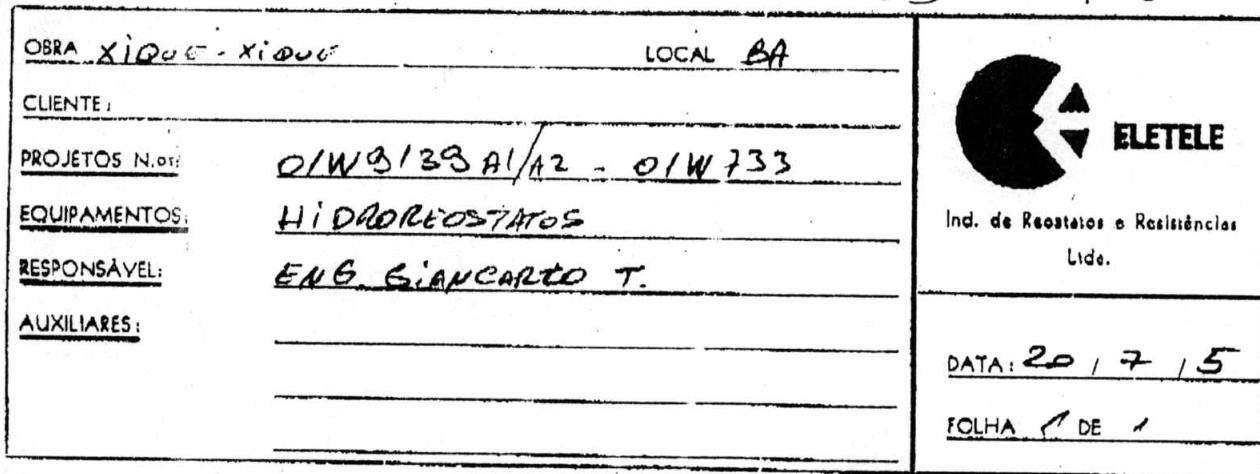 OBRA XiQUE-XiQUE LOCAL BA
CLIENTE:
PROJETOS N.os: 01W9139 A1/A2 - 01W733
EQUIPAMENTOS: HiDROREOSTATOS
RESPONSÁVEL: ENG. GiANCARLO T.
AUXILIARES:
ELETELE
Ind. de Reostatos e Resistências
Ltda.
DATA: 20 / 7 / 5
FOLHA 1 DE 1